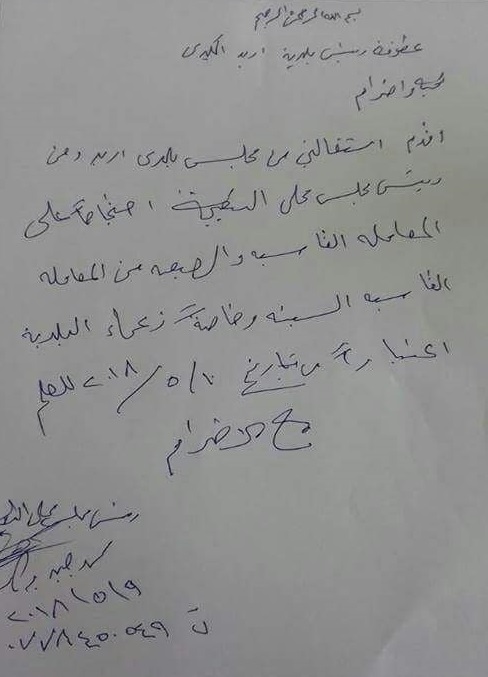 بسم الله الرحمن الرحيم
عطوفة رئيس بلدية اربد الكبرى
تحية واحترام
اقدم استقالتي من مجلس بلدي اربد ومن
رئيس مجلس محلي احتجاجاً على
المعامله القاسيه والصعبه من المعامله
القاسيه السيئه وخاصةً زعماء البلدية
اعتباراً من تاريخ ٢٠١٨/٥/١٠ للعلم
مع الاحترام
رئيس مجلس محلي
٢٠١٨/٥/٩
ت ٠٧٧٨٤٥٠٥٤٩